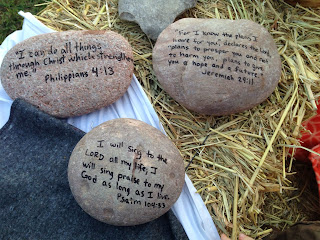 "I can do all things
through Christ which strengthens
me."
Philippians 4:13
"For I know the plans I
have for you," declares the Lord,
"plans to prosper you and not
to harm you, plans to give
you a hope and a future."
Jeremiah 29:11
I will sing to the
LORD all my life; I
will sing praise to my
God as long as I live.
Psalm 104:33